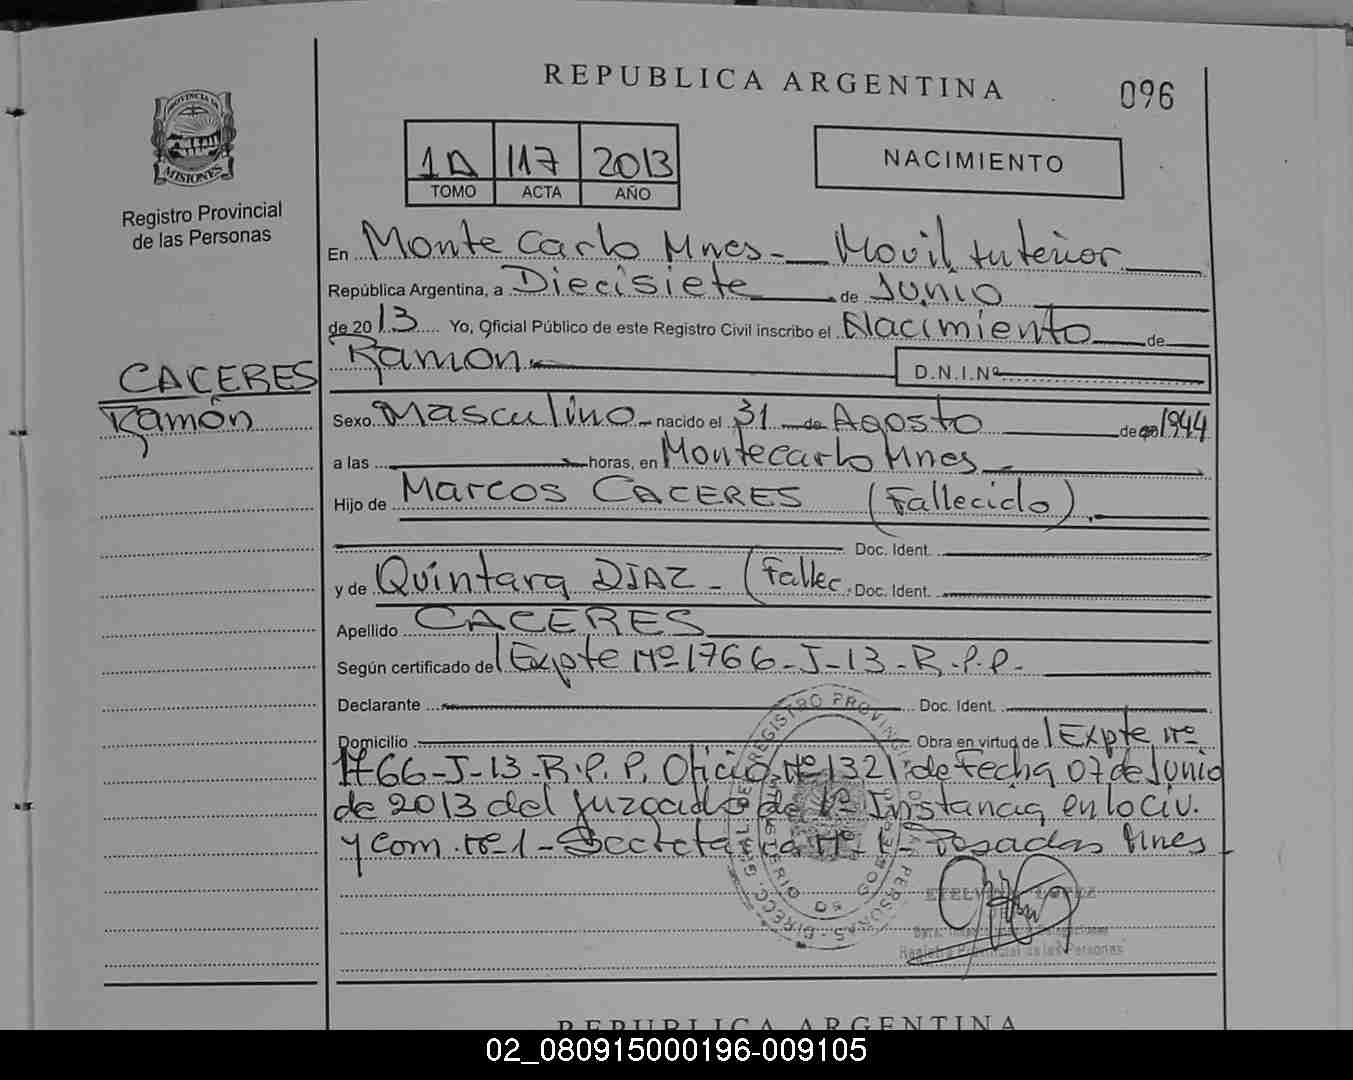 REPUBLICA ARGENTINA
096
PROVINCIA DE
MISIONES
Registro Provincial
de las Personas
1D 117 2013
TOMO ACTA AÑO
NACIMIENTO
En Monte Carlo Mnes - Movil Interior
República Argentina, a Diecisiete de Junio
de 2013 Yo, Oficial Público de este Registro Civil inscribo el Nacimiento de
Ramón D.N.I.Nº
CACERES
Ramón
Sexo Masculino nacido el 31 de Agosto de 1944
a las horas, en Montecarlo Mnes
Hijo de Marcos CACERES (Fallecido)
Doc. Ident.
y de Quintana DIAZ - (Fallec. Doc. Ident.
Apellido CACERES
Según certificado de Expte Nº 1766-J-13-R.P.P.
Declarante Doc. Ident.
Domicilio Obra en virtud de Expte Nº
1766-J-13-R.P.P. Oficio Nº 1321 de Fecha 07 de Junio
de 2013 del Juzgado de 1º Instancia en lo Civ.
y Com. Nº 1 - Secretaria Nº 1 - Posadas Mnes
Registro Provincial de las Personas
REPUBLICA ARGENTINA
02_080915000196-009105